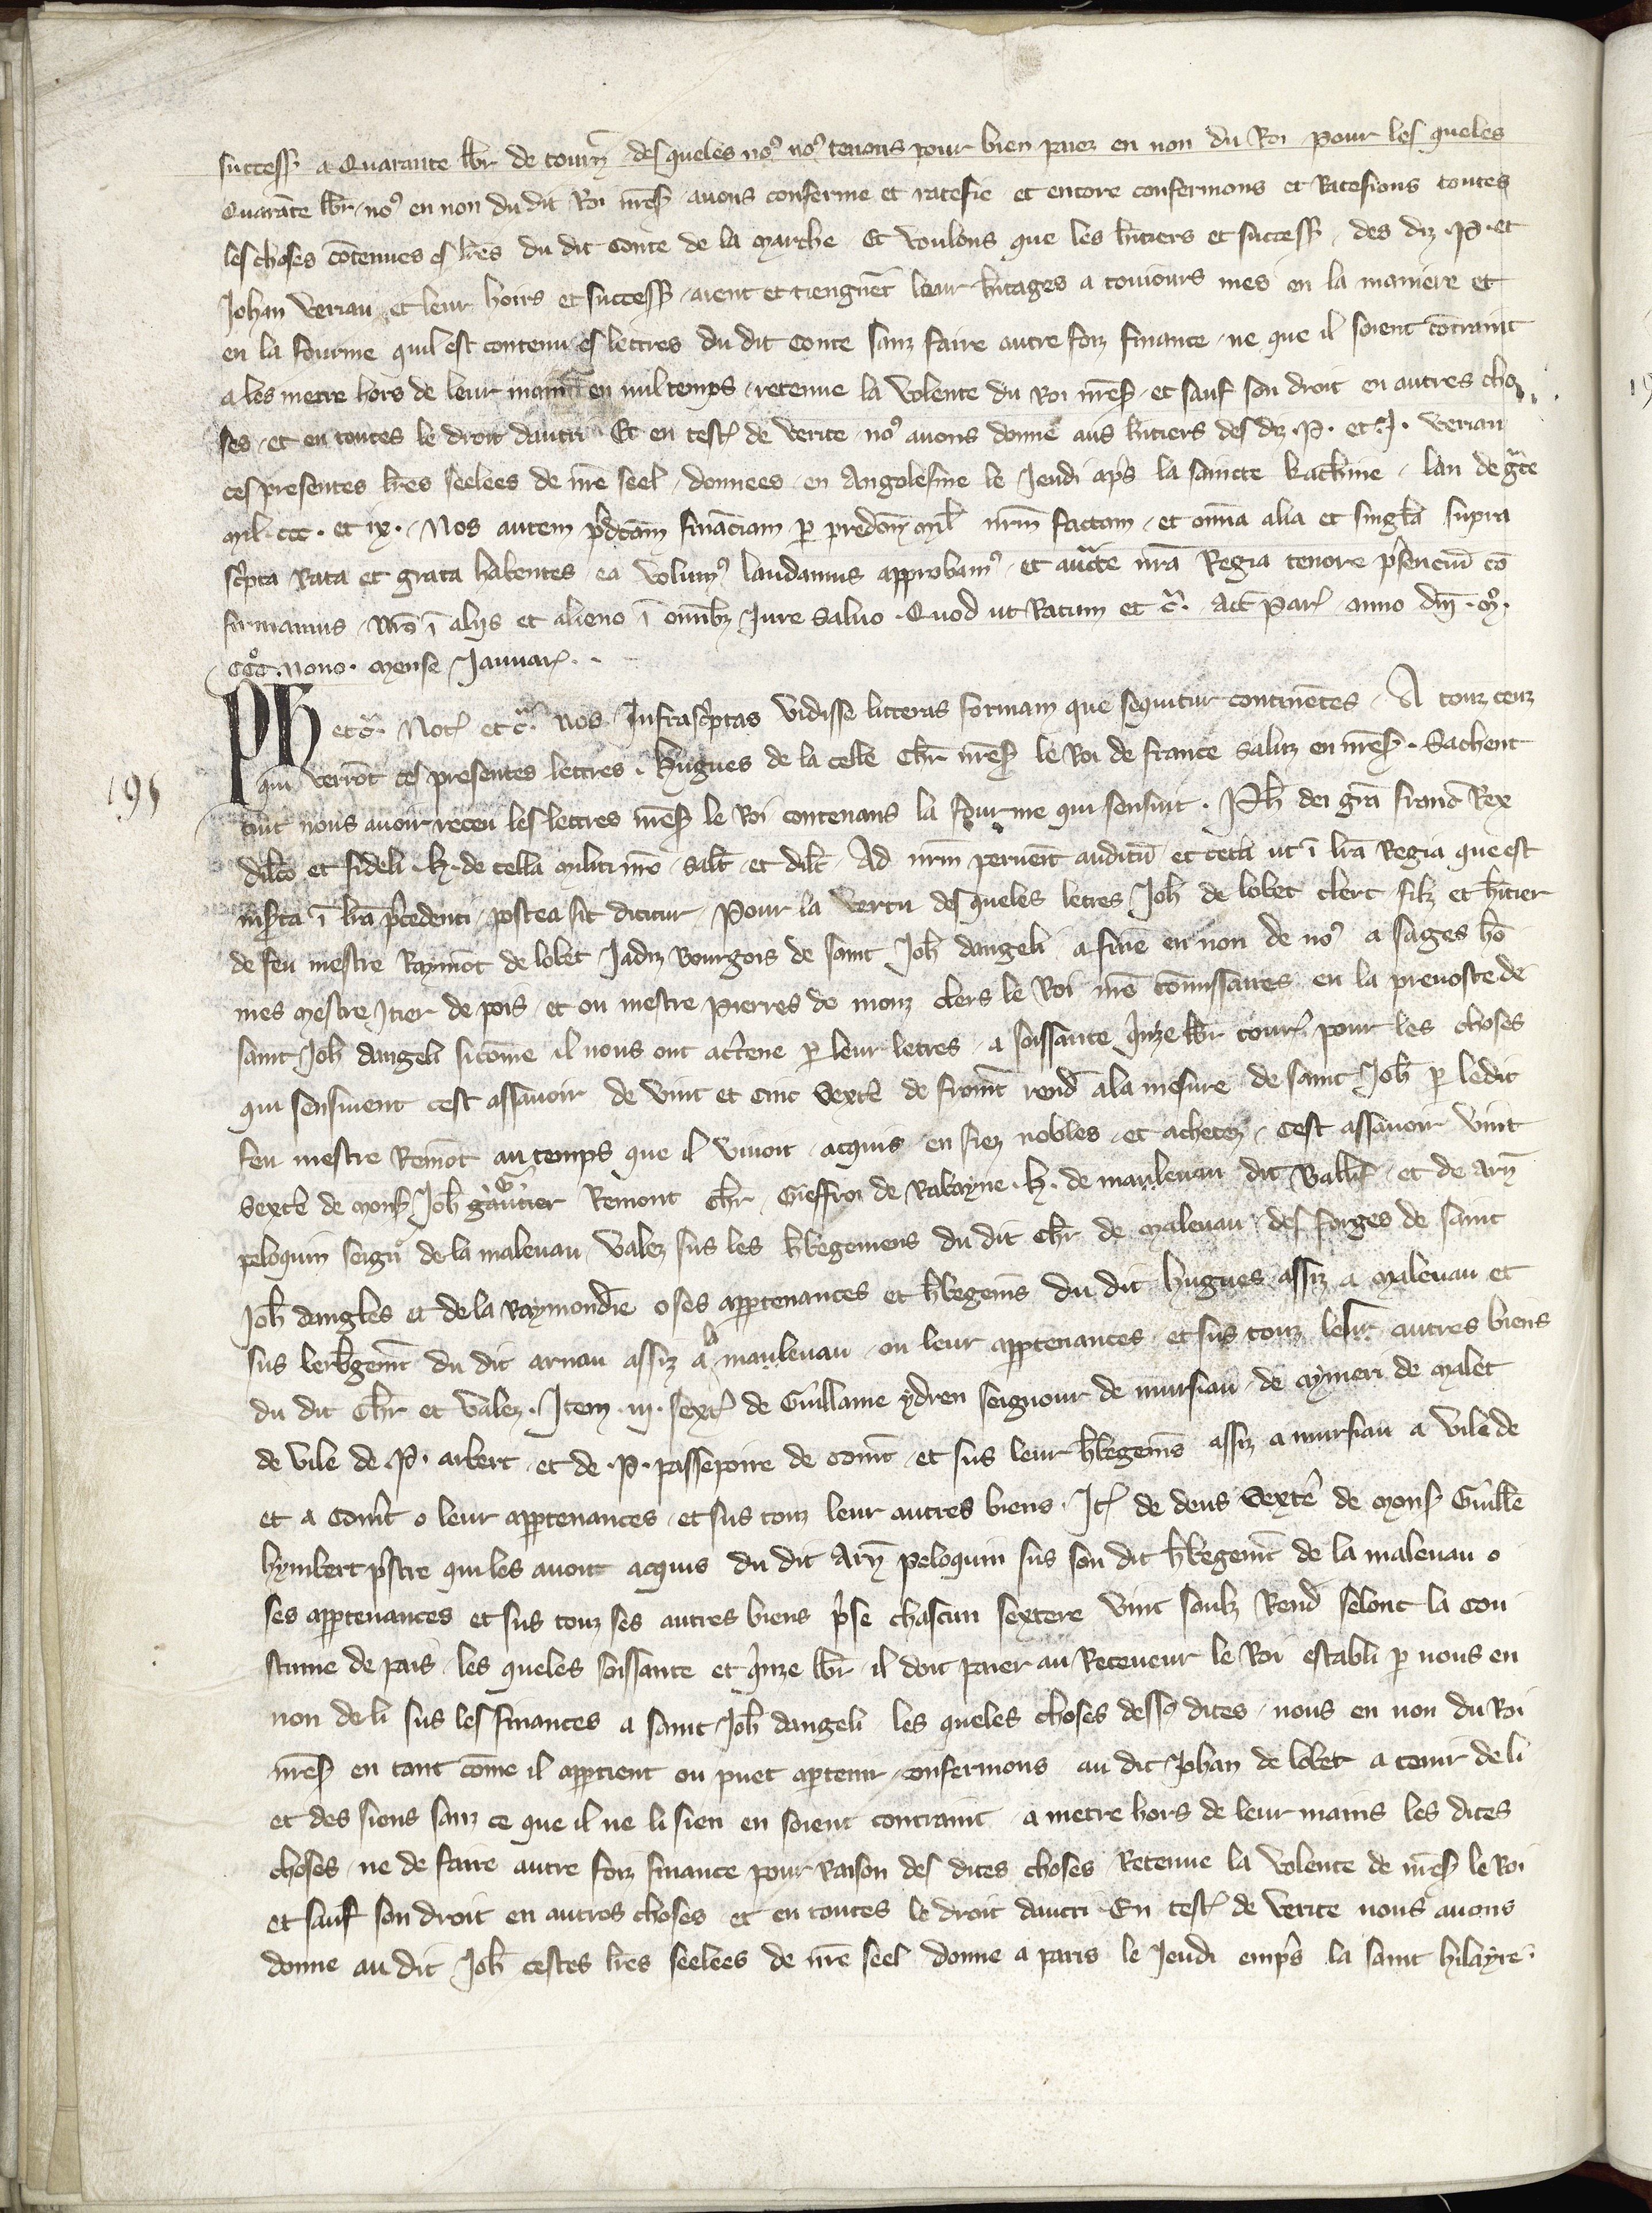 success̃ a Quarante lb̃r de tourñ des queles no9 no9 tenons pour bien paiez en non du Roi pour les queles
Quarãte lb̃r no9 en non du dit Roi nr̃eſ. auons conferme et ratefie et encore confermons et Ratefions toutes
les choses cõtenues es lr̃es du dit Conte de la Marche Et voulons que les h̃itiers et success̃ des diz .P. et
Johan Veriau et leur hoirs et success̃ aient et tiengnẽt leur h̃itages a touiours mes en la maniere et
en la fourme quil est contenu es lettres du dit Conte sanz faire autre foiz finance ne que il soient cõtraint
a les metre hors de leur main en nul temps retenue la volente du Roi nr̃eſ et sauf son droit en autres cho
ses et en toutes le droit dautri Et en tesť de verite no9 auons donne aus h̃itiers des diz .P. et .J. Veriau
ces presentes lr̃es seelees de nr̃e seel donnees en Angolesme le Jeudi ap̃s la saincte Kath̃ine lan de gr̃ce
mil .ccc. et ix. Nos autem p̃dc̃am finãciam p predc̃m mil̃ nr̃m factam et om̃a alia et singl̃a supra
sc̃pta Rata et grata habentes ea volum9 laudamus approbam9 et auc̃te nr̃a Regia tenore p̃senciũ cõ
firmamus Nr̃o ĩ aliis et alieno ĩ om̃ibz Jure Saluo Quod ut Ratum et c̃. Act̃ Par̃ anno dñi .m̊.
ccc̊. nono. Mense Januar̃.
Ph et c̃. Not̃ et c̃. nos Infrasc̃ptas vidisse litteras formam que sequitur continẽtes A touz ceuz
qui verrõt ces presentes lettres. Hugues de la Celle Ch̃r nr̃eſ le Roi de france Saluz en nr̃eſ. Sachent
tuit nous auoir receu les lettres nr̃eſ le Roi contenans la fourme qui sensuit. Ph̃ dei gr̃a franc̃ Rex
195
dilc̃o et fideli .H. de Cella militi nr̃o salt̃ et dilc̃ Ad nr̃m peruenit auditũ et cetã ut ĩ lr̃a Regia que est
ins̃ta ĩ lr̃a p̃cedenti postea sic dicitur Pour la vertu des queles letres Joh̃ de lobet clerc filz et h̃itier
de feu mestre Raymõt de lobet Jadiz bourgois de saint Joh̃ dangeli a finé en non de no9 a sages hõ
mes Mestre Itier de pois et ou mestre Pierres de monz clers le Roi nr̃e cõmissaires en la preuoste de
saint Joh̃ dangeli sicõme il nous ont actẽne p leur letres a soissante q̃nze lb̃r tour̃ pour les choses
qui sensiuent cest assauoir de vint et cinc Sext̃ de fromt̃ rend̃ a la mesure de saint Joh̃ p ledit
feu mestre Remõt au temps que il viuoit acquis en fiez nobles et achetez cest assauoir vint
Sext̃ de Monſ Joh̃ gautier Remont Ch̃r Gieffroi de Rabayne .H. de mauleuau dit Vall̃ et de Arñ
peloquin seigñr de la maleuau valez sus les h̃begemens du dit Ch̃r de Maleuau des forges de saint
Joh̃ dangl̃es et de la Raymondiẽ o ses appẽtenances et h̃begem̃s du dit Hugues assiz a Maleuau et
sus lerb̃gemt̃ du dit arnau assiz a la mauleuau ou leur appẽtenances et sus touz leur autres biens
du dit Ch̃r et valez. Item .iij. sext̃ de Guillaume ydren seignour de mursiau de Aymeri de Malet
de vile de .P. arbert et de .P. passepoire de Comt̃ et sus leur h̃begem̃s assiz a mursiau a vile de
et a Comt̃ o leur appẽtenances et sus touz leur autres biens. It̃ de deus Sext̃ de Monſ Guill̃e
hymbert p̃stre qui les auoit acquis du dit Arñ Peloquin sus son dit h̃begemt̃ de la maleuau o
ses appẽtenances et sus touz ses autres biens p̃se chascun sextere vint soulz Rend̃ selonc la cou
stume de pais les queles soissante et q̃nze lb̃r il doit paier au Receueur le Roi establi p nous en
non de li sus les finances a saint Joh̃ dangeli les queles choses dess9 dites nous en non du Roi
nr̃eſ en tant cõme il appẽtient ou puet aptenir confermons au dit Johan de lobet a tenir de li
et des siens sanz ce que il ne li sien en soient contraint a metre hors de leur mains les dites
choses ne de faire autre foiz finance pour Raison des dites choses Retenue la volente de nr̃eſ le Roi
et sauf son droit en autres choses et en toutes le droit dautri En tesť de verite nous auons
donne au dit Joh̃ cestes lr̃es seelees de nr̃e seel donne a paris le Jeudi emp̃s la saint hilayre.